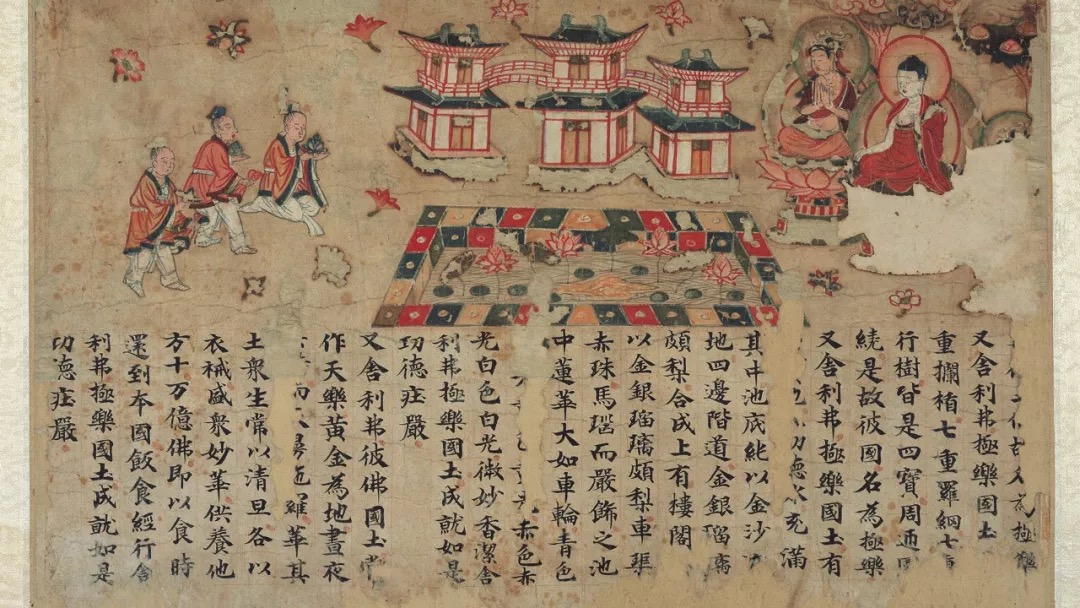 又舍利弗極樂國土
重攔楯七重羅網七
行樹皆是四寶周迊
繞是故彼國名為極樂
又舍利弗極樂國土有
功德水充滿
其中池底純以金沙
地四邊階道金銀瑠璃
頗梨合成上有樓閣
以金銀瑠璃頗梨車璖
赤珠馬瑙而嚴飾之池
中蓮華大如車輪青色
赤色赤
光白色白光微妙香潔舍
利弗極樂國土成就如是
功德莊嚴
又舍利弗彼佛國土常
作天樂黃金為地晝夜
羅華其
土衆生常以清旦各以
衣裓盛衆妙華供養他
方十万億佛即以食時
還到本國飯食經行舍
利弗極樂國土成就如是
功德莊嚴